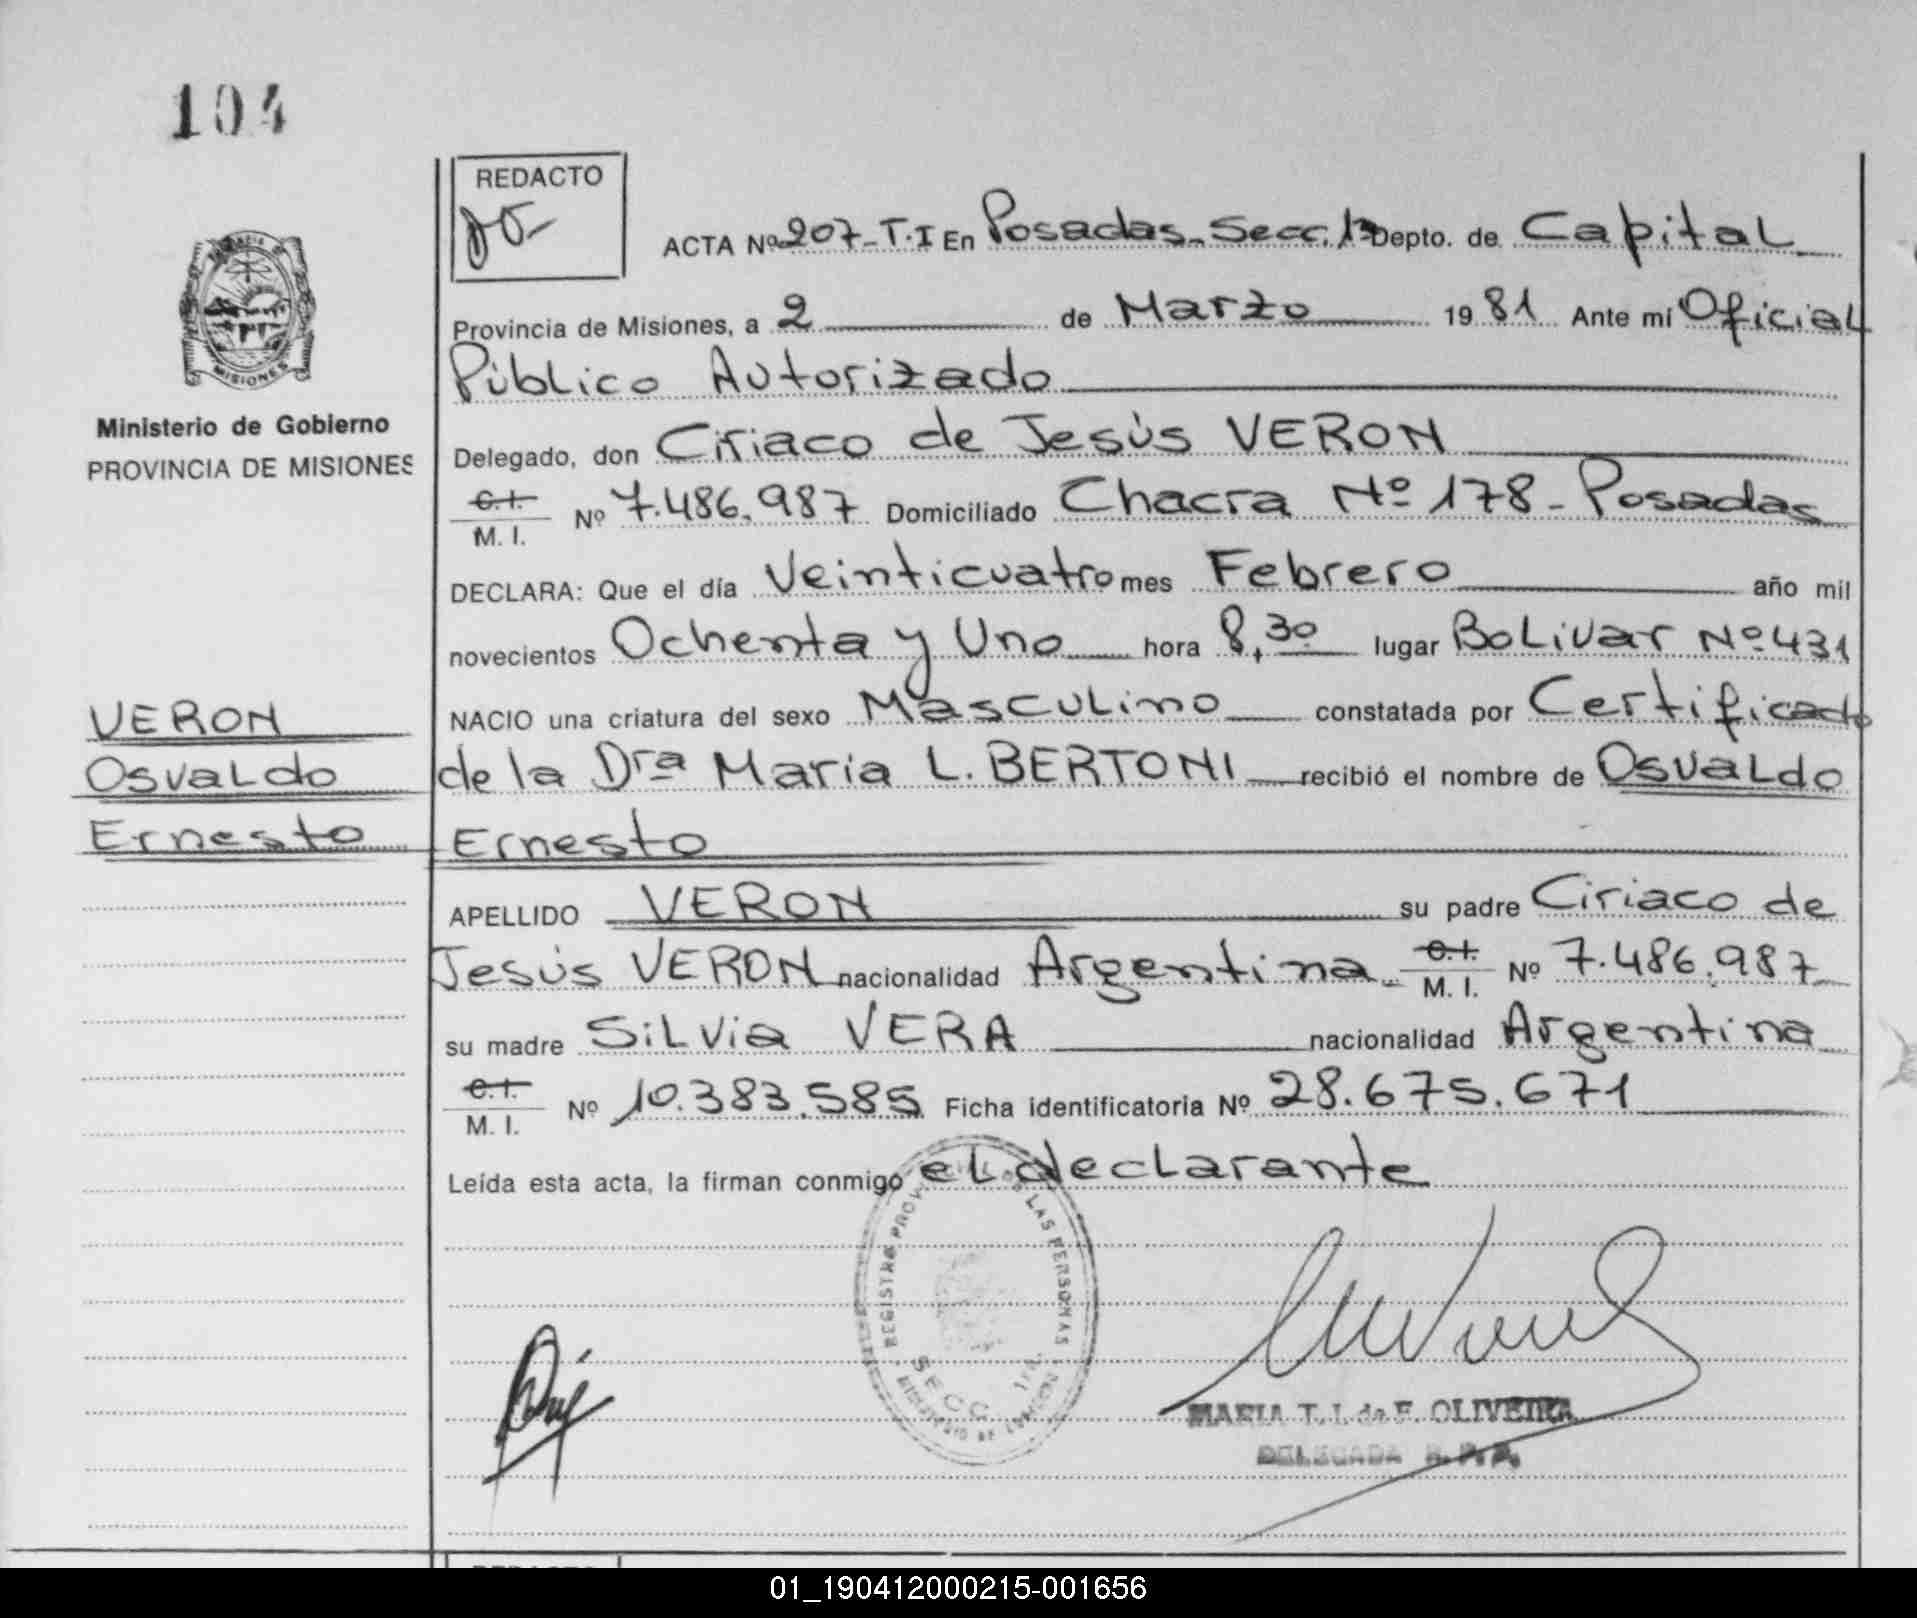 104
REDACTO
ACTA Nº 207-T.I En Posadas-Secc. 1ª Depto. de Capital
Provincia de Misiones, a 2 de Marzo 1981 Ante mí Oficial
Público Autorizado
MISIONES
Ministerio de Gobierno
PROVINCIA DE MISIONES
Delegado, don Ciriaco de Jesús VERON
C.I.
M. I. Nº 7.486.987 Domiciliado Chacra Nº 178 - Posadas
DECLARA: Que el día Veinticuatro mes Febrero año mil
novecientos Ochenta y Uno hora 8,30 lugar Bolivar Nº 431
VERON
Osvaldo
Ernesto
NACIO una criatura del sexo Masculino constatada por Certificado
de la Dra Maria L. BERTONI recibió el nombre de Osvaldo
Ernesto
APELLIDO VERON su padre Ciriaco de
Jesús VERON nacionalidad Argentina C.I.
M. I. Nº 7.486.987
su madre Silvia VERA nacionalidad Argentina
C.I.
M. I. Nº 10.383.585 Ficha identificatoria Nº 28.675.671
Leída esta acta, la firman conmigo el declarante
REGISTRO PROVINCIAL DE LAS PERSONAS
SECC. 1ra.
MARIA T. I. de F. OLIVEIRA
DELEGADA R.P.P.
01_190412000215-001656